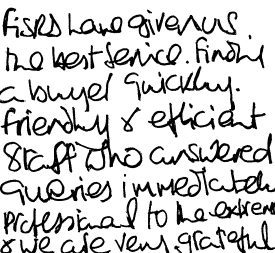 have given us
the best service. Finding
a buyer quickly.
friendly & efficient
Staff who answered
queries immediately
Professional to the extreme
& we are very grateful